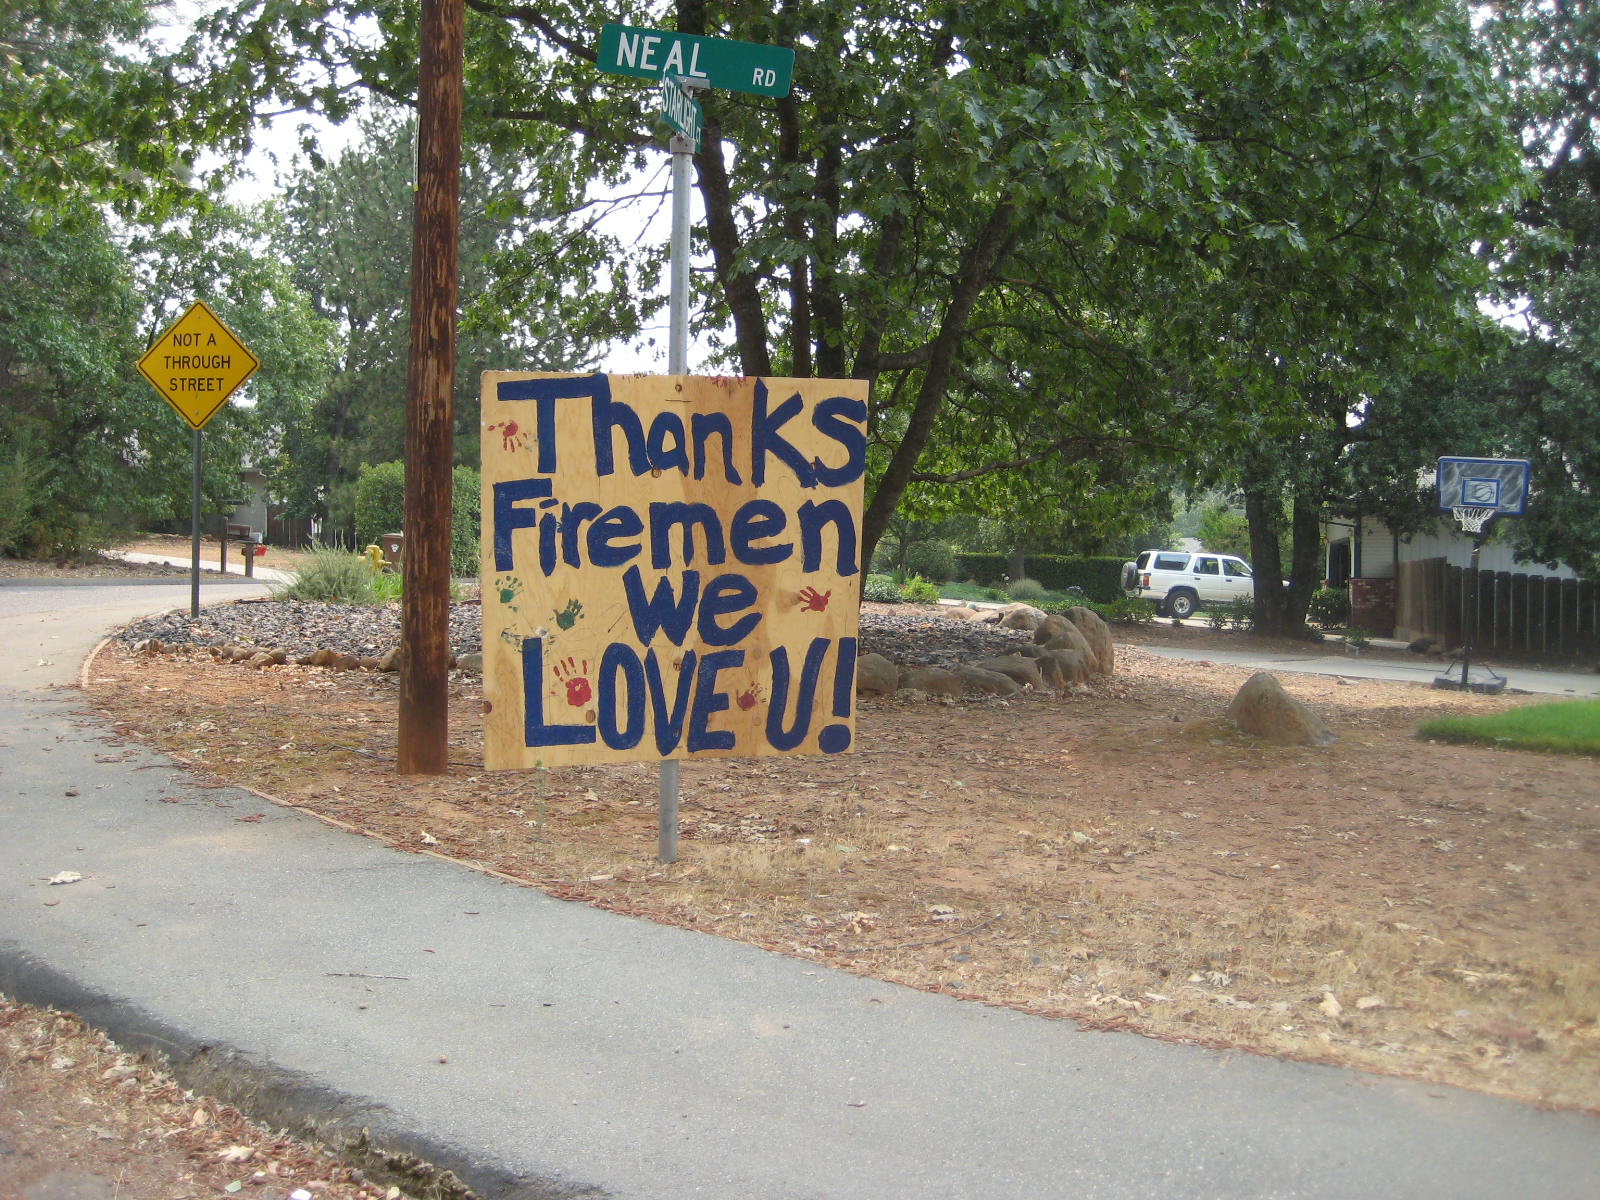 NEAL RD
STARLIGHT CT
NOT A
THROUGH
STREET
Thanks
Firemen
We
LOVE U!